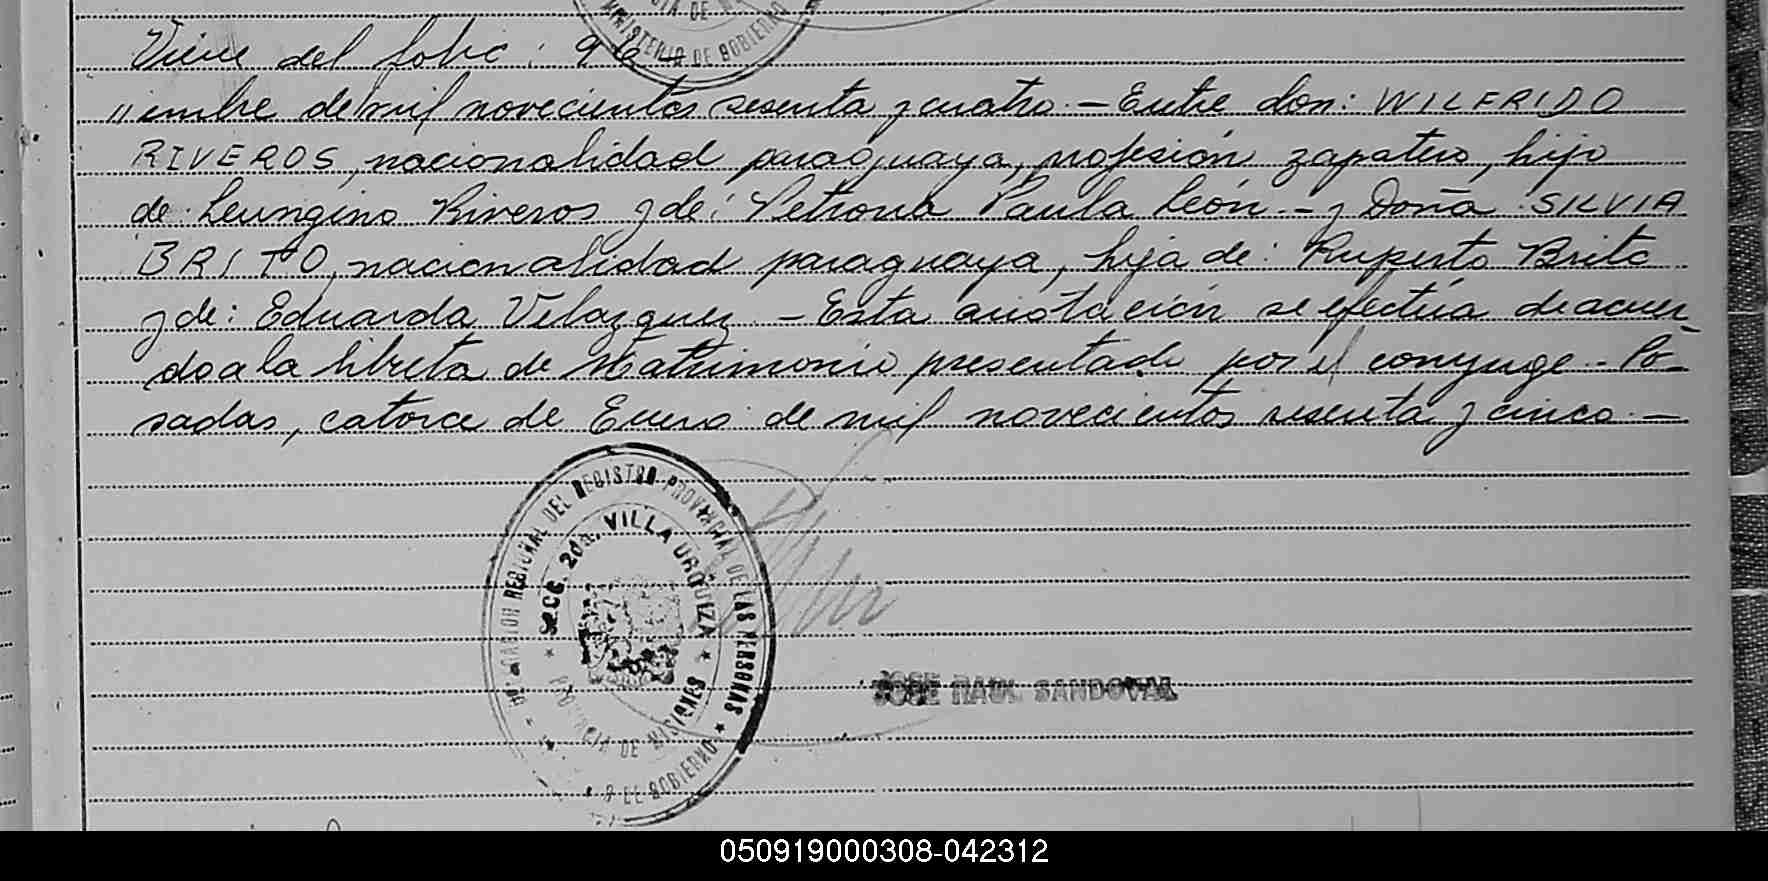 MINISTERIO DE GOBIERNO
Viene del folio: 96
"iembre de mil novecientos sesenta y cuatro.- Entre don: WILFRIDO
RIVEROS, nacionalidad paraguaya, profesión zapatero, hijo
de Leungino Riveros y de: Petrona Paula León.- y Doña SILVIA
BRITO, nacionalidad paraguaya, hija de: Ruperto Brito
y de: Eduarda Velazquez.- Esta anotación se efectúa de acuer-
do a la libreta de Matrimonio presentada por el conyuge.- Po-
sadas, catorce de Enero de mil novecientos sesenta y cinco.-
DEL REGISTRO PROVINCIAL DE LAS PERSONAS
SECC. 2da. VILLA URQUIZA
PROVINCIA DE MISIONES
DE GOBIERNO
JOSE RAUL SANDOVAL
050919000308-042312